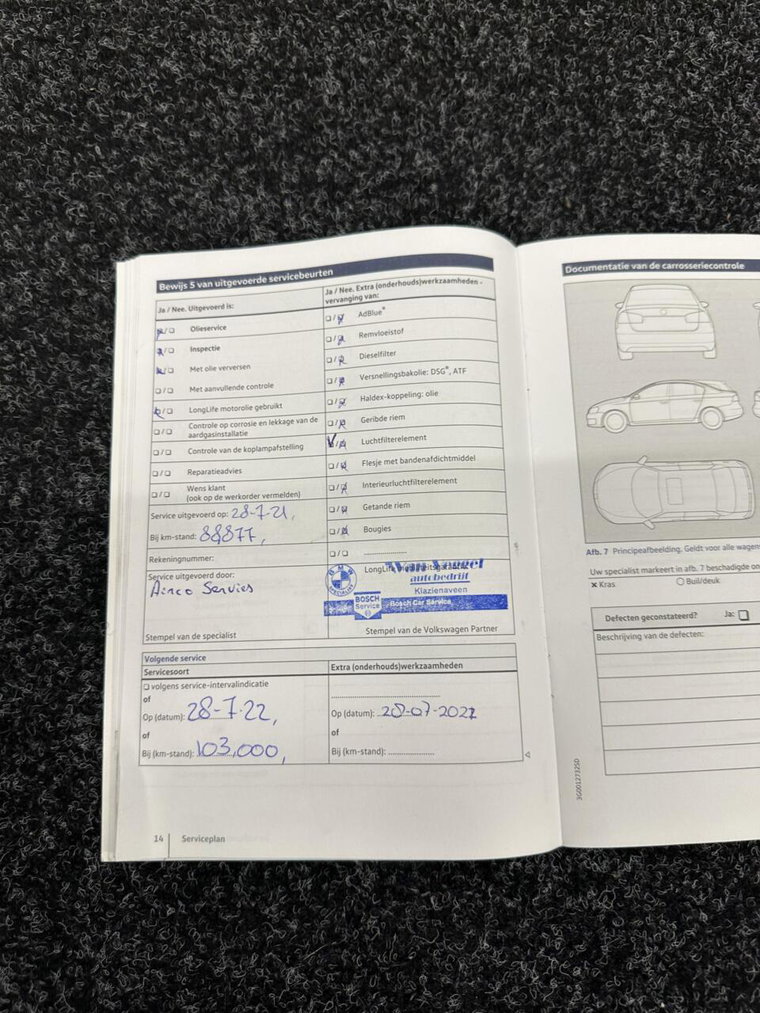 Bewijs 5 van uitgevoerde servicebeurten
Ja / Nee. Uitgevoerd is:
Olieservice
Inspectie
Met olie verversen
Met aanvullende controle
LongLife motorolie gebruikt
Controle op corrosie en lekkage van de
aardgasinstallatie
Controle van de koplampafstelling
Reparatieadvies
Wens klant
(ook op de werkorder vermelden)
Service uitgevoerd op: 28-7-21,
Bij km-stand: 88877,
Rekeningnummer:
Service uitgevoerd door:
Airco Servies
Stempel van de specialist
Ja / Nee. Extra (onderhouds)werkzaamheden -
vervanging van:
AdBlue®
Remvloeistof
Dieselfilter
Versnellingsbakolie: DSG®, ATF
Haldex-koppeling: olie
Geribde riem
Luchtfilterelement
Flesje met bandenafdichtmiddel
Interieurluchtfilterelement
Getande riem
Bougies
BMW
SPECIALIST
autobedrijf
Klazienaveen
BOSCH
Service
Bosch Car Service
Stempel van de Volkswagen Partner
Volgende service
Servicesoort
volgens service-intervalindicatie
of
Op (datum): 28-7-22,
of
Bij (km-stand): 103,000,
Extra (onderhouds)werkzaamheden
Op (datum): 28-07-2022
of
Bij (km-stand):
14 Serviceplan
Documentatie van de carrosseriecontrole
Afb. 7 Principeafbeelding. Geldt voor alle
Uw specialist markeert in afb. 7 beschadigde
× Kras
Buil/deuk
Defecten geconstateerd? Ja:
Beschrijving van de defecten:
3G0012732SD